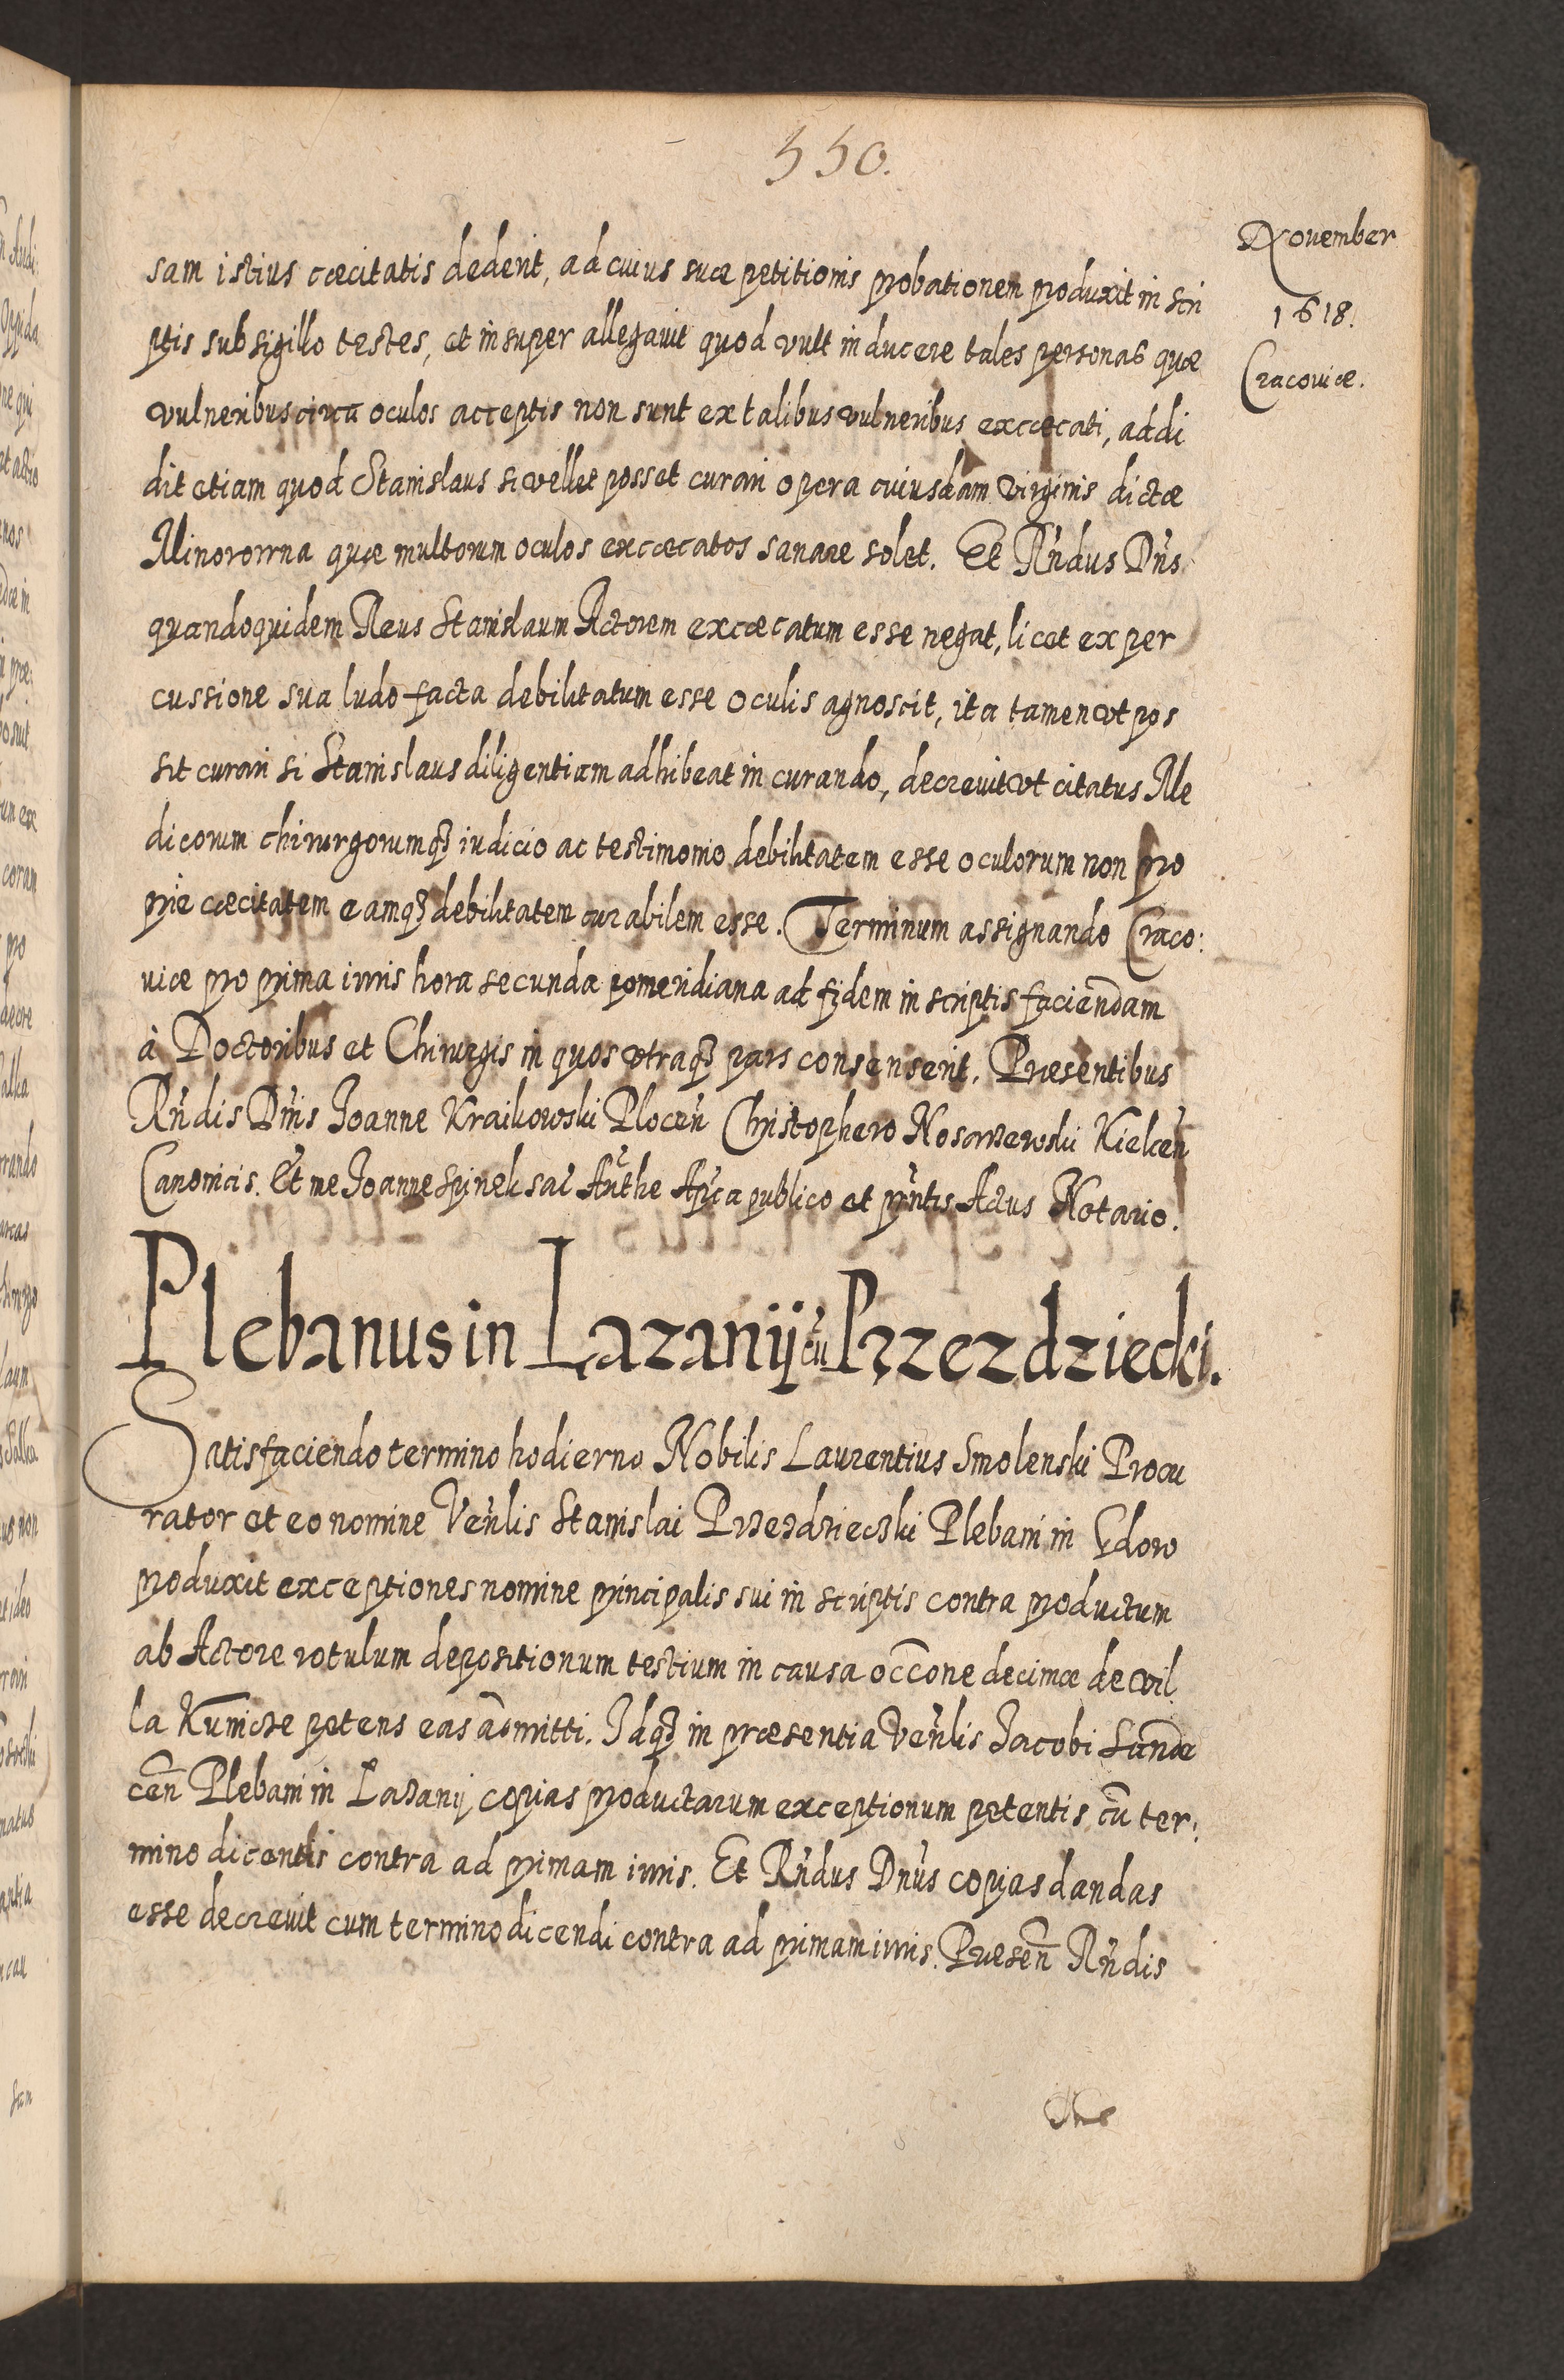 550.
November
1618.
Cracoviæ.
sam istius cæcitatis dederit, ad cuius suæ petitionis probationem produxit in scri
ptis sub sigillo testes, et insuper allegavit quod vult inducere tales personas quæ
vulneribus circa oculos acceptis non sunt ex talibus vulneribus excæcati, addi
dit etiam quod Stanislaus si vellet posset curari opera cuiusdam virginis dictæ
quæ multorum oculos excæcatos sanare solet. Et Rńdus Dńs
quandoquidem Reus Stanislaum Actorem excæcatum esse negat, licet ex per
cussione sua ludo facta debilitatum esse oculis agnoscit, ita tamen vt pos
sit curari si Stanislaus diligentiam adhibeat in curando, decrevit vt citatus Me
dicorum chirurgorumqꝫ iudicio ac testimonio debilitatem esse oculorum non pro
prie cæcitatem eamqꝫ debilitatem curabilem esse. Terminum assignando Craco:
viæ pro prima iuris hora secunda pomeridiana ad fidem in scriptis faciendam
à Doctoribus et Chirurgis in quos vtraqꝫ pars consenserit. Præsentibus
Rńdis Dńis Joanne Kraikowski Plocen̄ Christophero Nosarzewski Kielcen̄
Canonicis. Et me Joanne Spinek sac̃ Auc̃the Aplica publico et pn̄tis Actus Notario.
Plebanus in Lazanij cū Przezdziecki.
Satisfaciendo termino hodierno Nobilis Laurentius Smolenski Procu
rator et eo nomine Veńlis Stanislai Przezdziecki Plebani in Gdow
produxit exceptiones nomine principalis sui in scriptis contra productum
ab Actore rotulum depositionum testium in causa occōne decimæ de vil
la Kunicze petens eas admitti. Idqꝫ in præsentia Veńlis Jacobi Sandæ
cen̄ Plebani in Lazanij copias productarum exceptionum petentis cū ter:
mino dicendi contra ad primam iuris. Et Rńdus Dńus copias dandas
esse decrevit cum termino dicendi contra ad primam iuris. Præsen̄ Rńdis